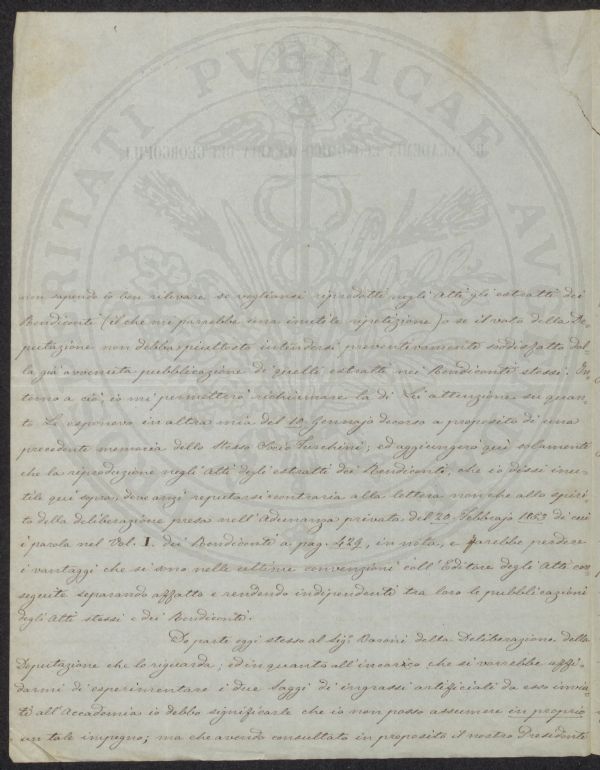 non sapendo io ben rilevare se vogliansi riprodotti negli Atti gli estratti dei
Rendiconti (il che mi parrebbe una inutile ripetizione) o se il voto della De-
putazione non debba piuttosto intendersi preventivamente soddisfatto dal-
la già avvenuta pubblicazione di quelli estratti nei Rendiconti stessi. In-
torno a ciò io mi permetterò richiamare la di Lei attenzione su quan-
to Le esponevo in altra mia del 10 Gennajo decorso a proposito di una
precedente memoria dello stesso Socio; ed aggiungerò qui solamente
che la riproduzione negli Atti degli estratti dei Rendiconti, che io dissi inu-
tile qui sopra, deve anzi reputarsi contraria alla lettera non che allo spiri-
to della deliberazione presa nell'Adunanza privata del 20 Febbrajo di cui
è parola nel Vol. I. dei Rendiconti a pag. 429, in nota, e farebbe perdere
i vantaggi che si sono nelle ultime convenzioni coll'Editore degli Atti con-
seguite separando affatto e rendendo indipendenti tra loro le pubblicazioni
degli Atti stessi e dei Rendiconti.
Do parte oggi stesso al Sig. Baroni della Deliberazione della
Deputazione che lo riguarda; ed in quanto all'incarico che si vorrebbe affi-
darmi di esperimentare i due saggi di ingrassi artificiali da esso invia-
ti all'Accademia io debbo significarle che io non posso assumere in proprio
un tale impegno; ma che avendo consultato in proposito il nostro Presidente